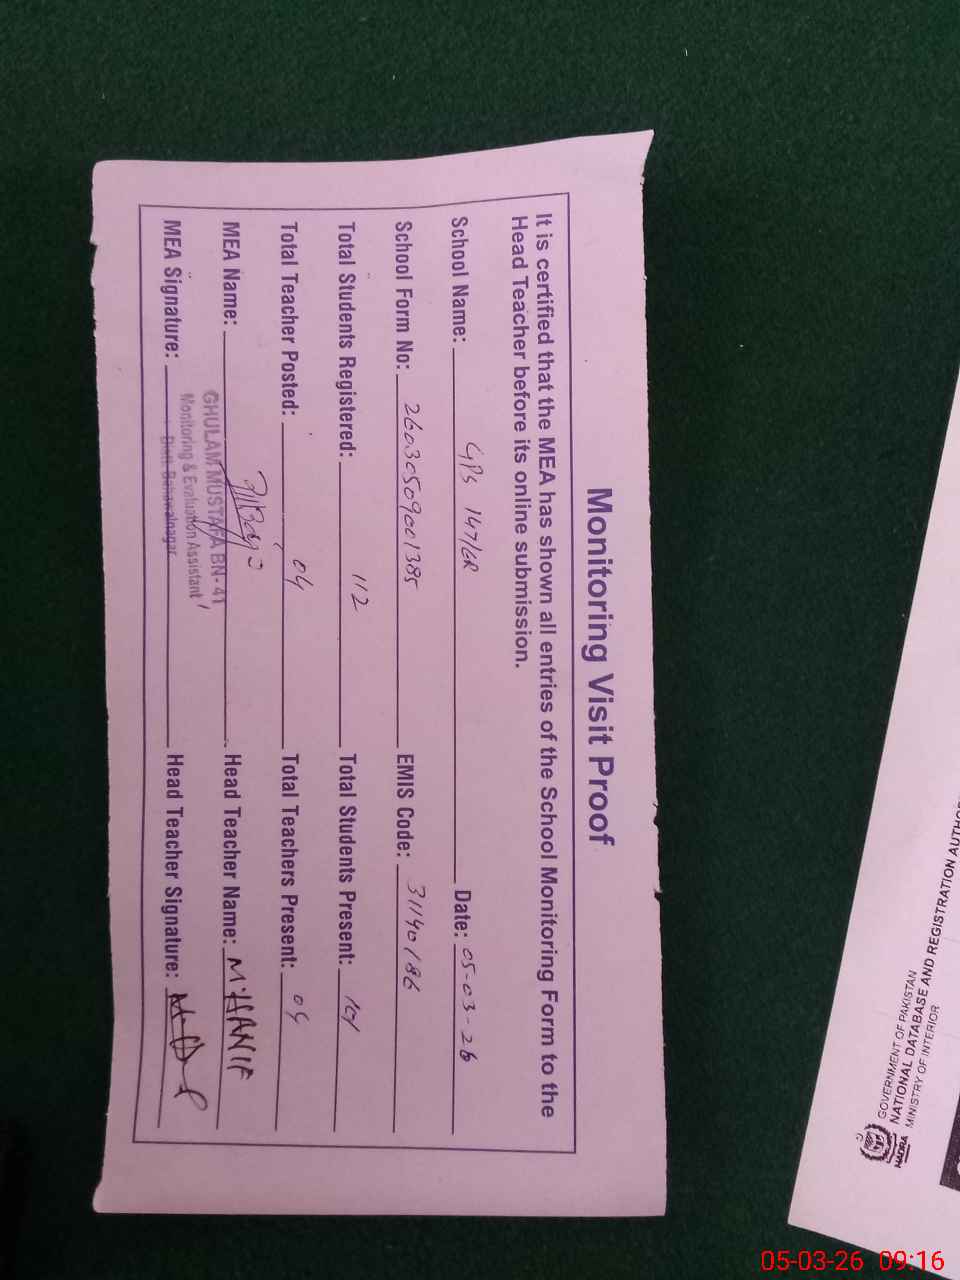 Monitoring Visit Proof
It is certified that the MEA has shown all entries of the School Monitoring Form to the
Head Teacher before its online submission.
School Name: GPS 147/6R Date: 05-03-26
School Form No: 26030509001385 EMIS Code: 31140186
Total Students Registered: 112 Total Students Present:
Total Teacher Posted: 04 Total Teachers Present: 04
MEA Name: Head Teacher Name: M.HANIF
GHULAM MUSTAFA BN-41
Monitoring & Evaluation Assistant
Distt. Bahawalnagar
MEA Signature: Head Teacher Signature:
GOVERNMENT OF PAKISTAN
NATIONAL DATABASE AND REGISTRATION
MINISTRY OF INTERIOR
NADRA
05-03-26 09:16